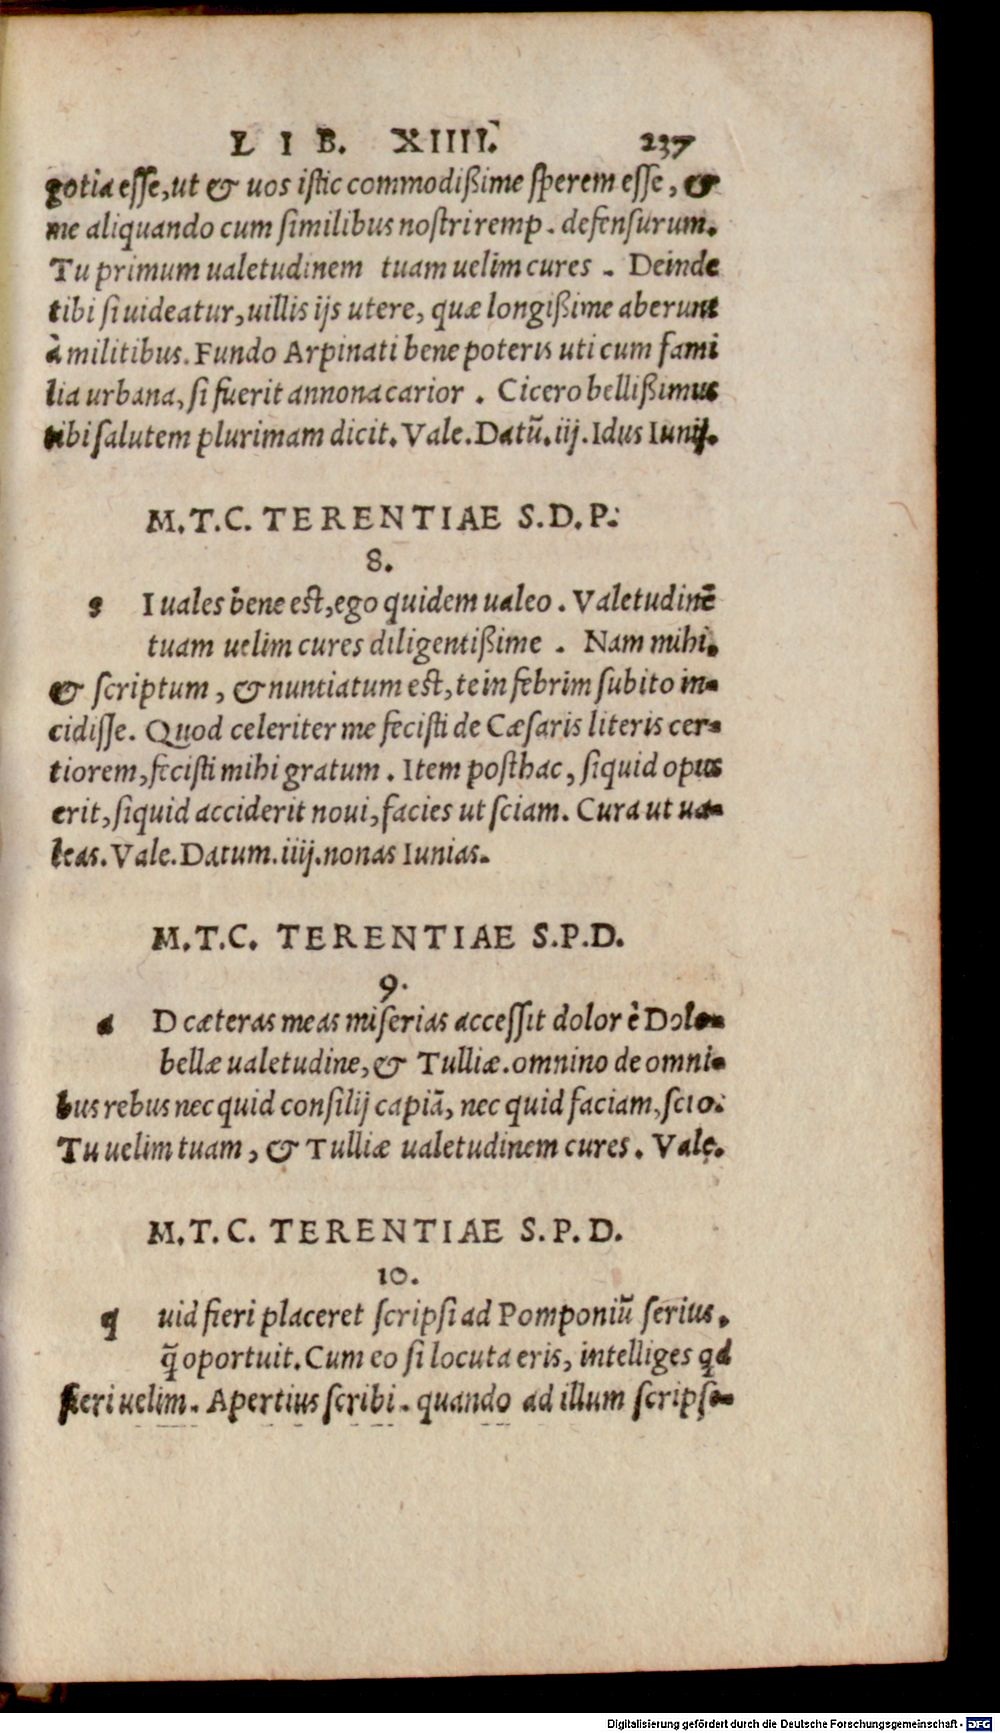 LIB. XIIII. 237
gotia esse, ut & uos istic commodißime sperem esse, &
me aliquando cum similibus nostri remp. defensurum.
Tu primum ualetudinem tuam uelim cures. Deinde
tibi si uideatur, uillis ijs utere, quæ longißime aberunt
à militibus. Fundo Arpinati bene poteris uti cum fami
lia urbana, si fuerit annona carior. Cicero bellißimus
tibi salutem plurimam dicit. Vale. Datũ. iij. Idus Iunij.
M.T.C. TERENTIAE S.D.P.
8.
s I uales bene est, ego quidem ualeo. Valetudinẽ
tuam uelim cures diligentißime. Nam mihi,
& scriptum, & nuntiatum est, te in febrim subito in-
cidisse. Quod celeriter me fecisti de Cæsaris literis cer-
tiorem, fecisti mihi gratum. Item posthac, siquid opus
erit, siquid acciderit noui, facies ut sciam. Cura ut ua-
leas. Vale. Datum. iiij. nonas Iunias.
M.T.C. TERENTIAE S.P.D.
9.
a D cæteras meas miserias accessit dolor è Dolo-
bellæ ualetudine, & Tulliæ. omnino de omni-
bus rebus nec quid consilij capiã, nec quid faciam, scio.
Tu uelim tuam, & Tulliæ ualetudinem cures. Vale.
M.T.C. TERENTIAE S.P.D.
10.
q uid fieri placeret scripsi ad Pomponiũ serius,
q̃ oportuit. Cum eo si locuta eris, intelliges qd
fieri uelim. Apertius scribi. quando ad illum scripse-
Digitalisierung gefördert durch die Deutsche Forschungsgemeinschaft - DFG